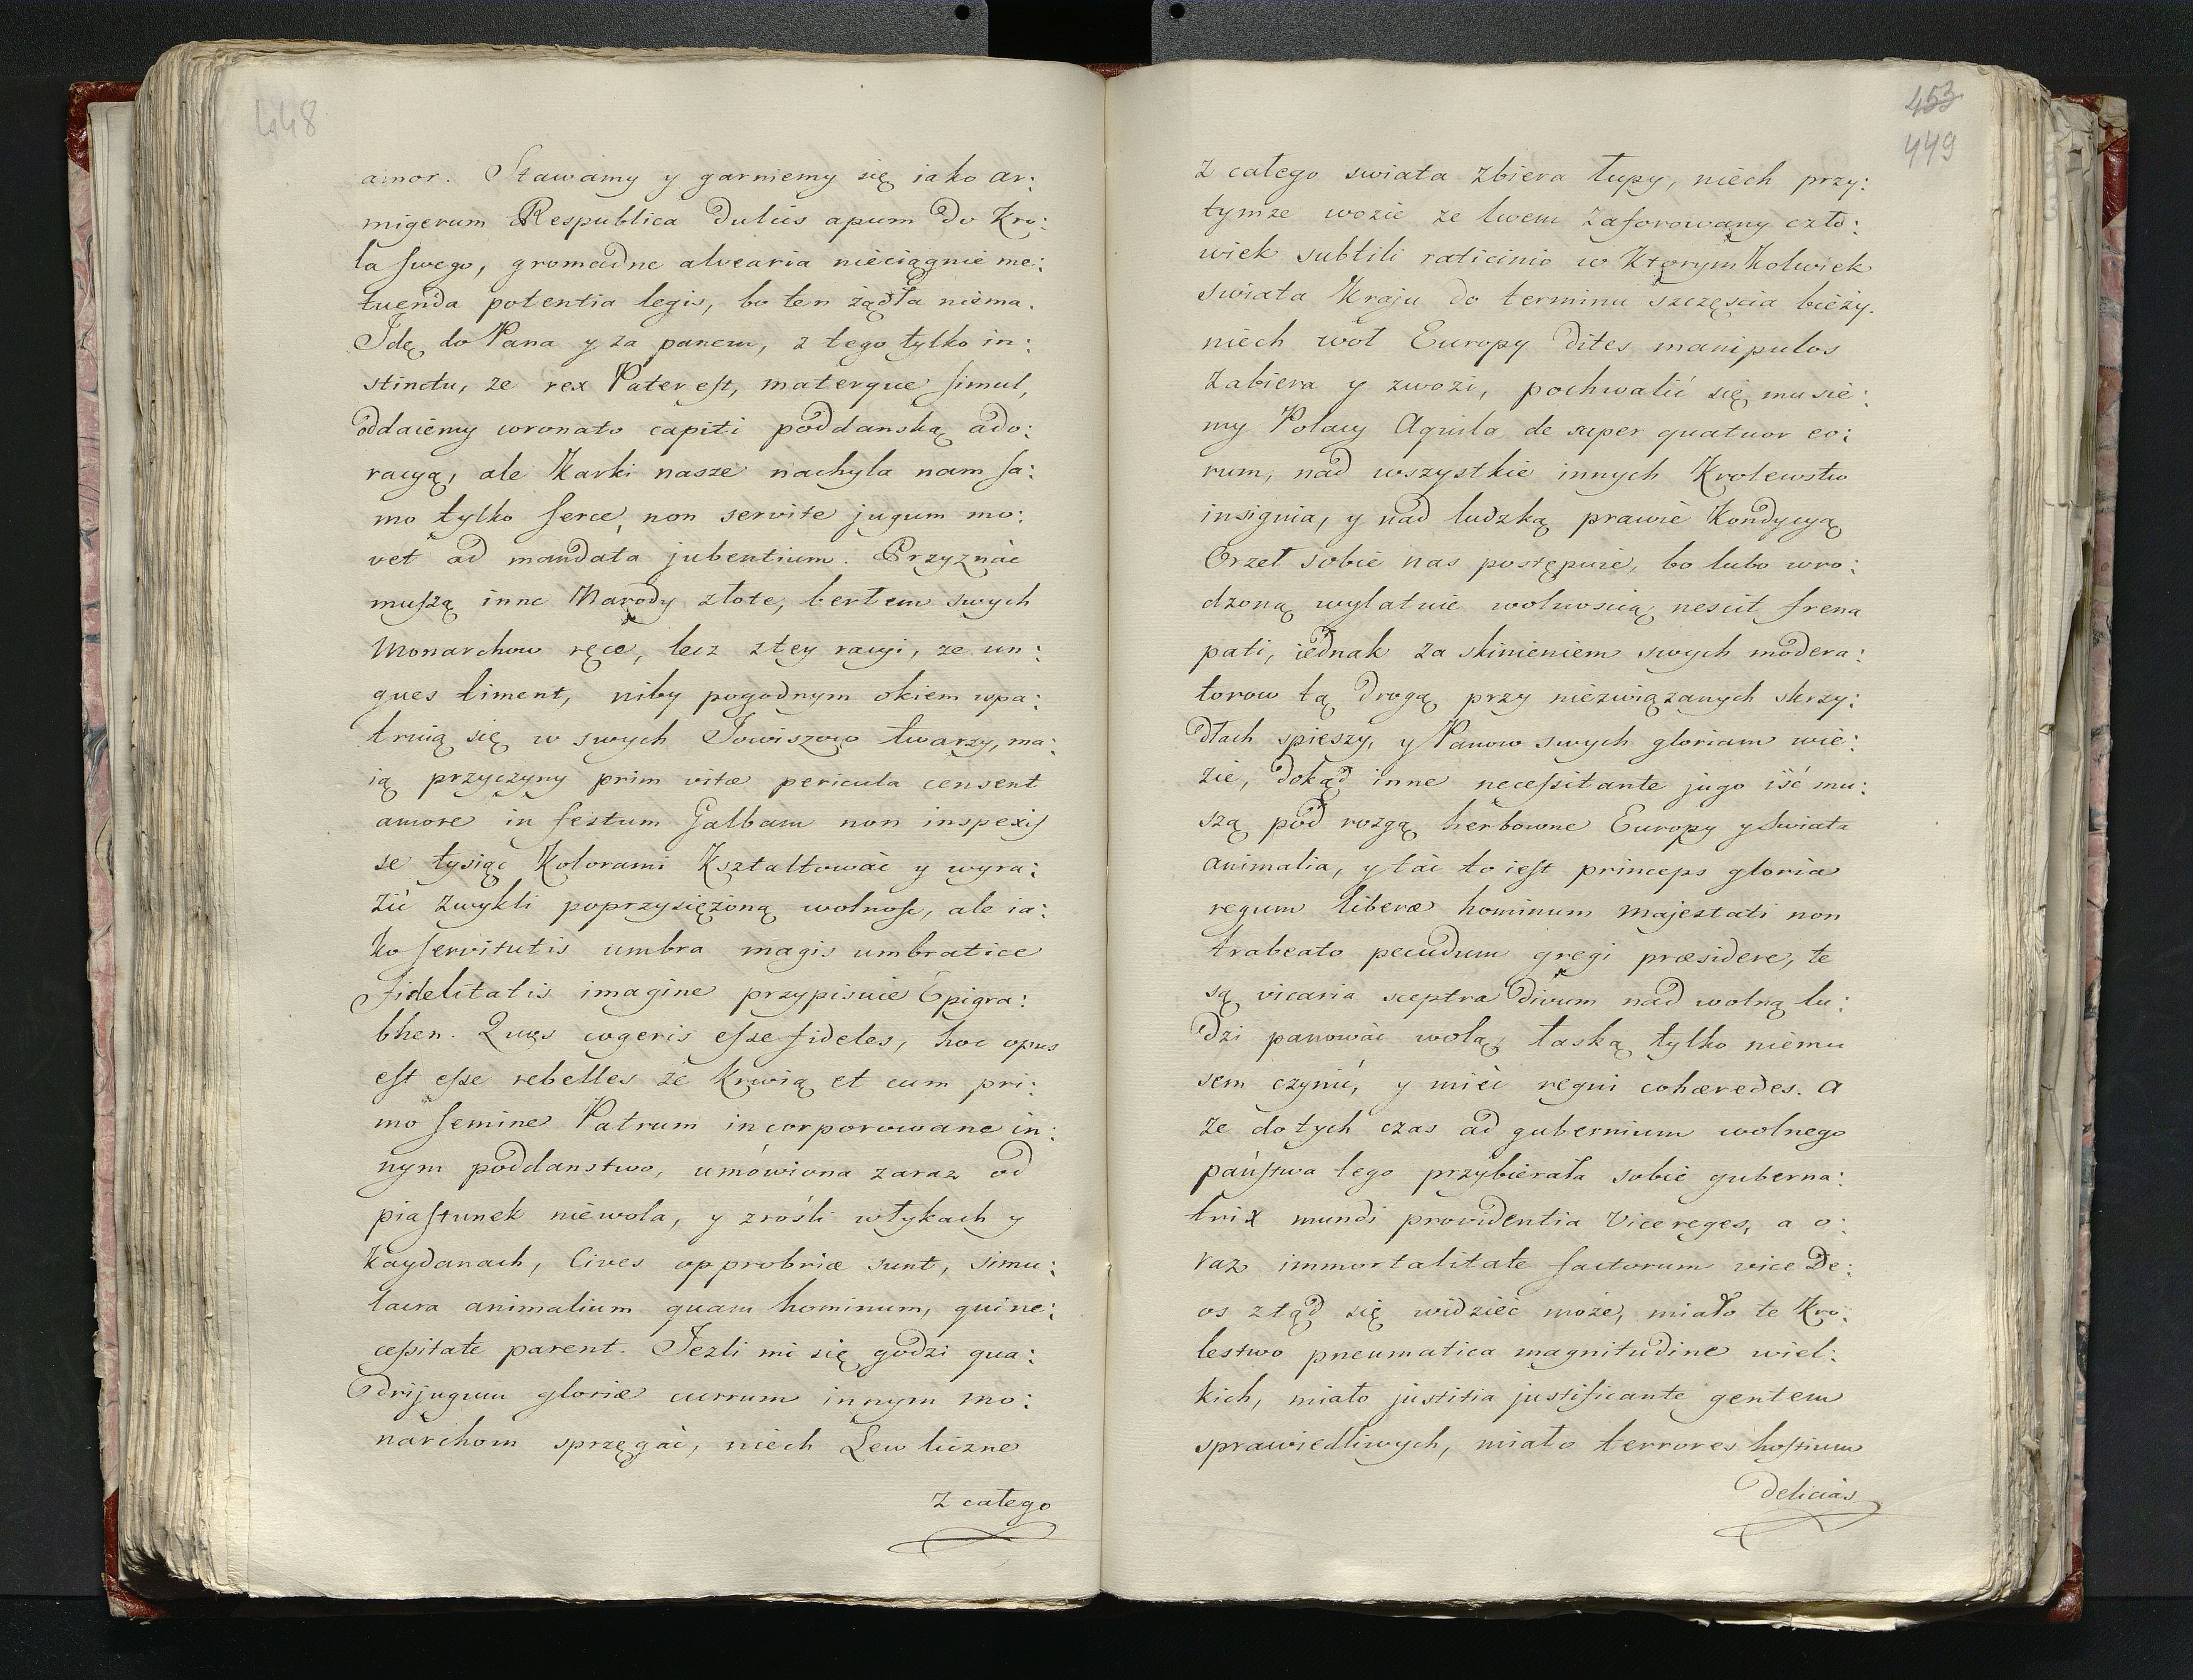 448
amor. Stawamy y garniemy się iako ar:
migerum Respublica dulcis apum do Kro:
la swego, gromadne alvearia nieciągnie me:
tuenda potentia legis, bo ten żądła niema.
Idę do Pana y za panem, z tego tylko in:
stinctu, ze rex Pater est, materque simul,
oddaiemy coronato capiti poddanską ado:
racyą, ale Karki nasze nachyla nam sa:
mo tylko serce, non servite jugum mo:
vet ad mandata jubentium. Przyznać
muszą inne Narody złote, berłem swych
Monarchow ręce, lecz z tey racyi, ze un:
gues timent, niby pogodnym okiem wpa:
truią się w swych Jowiszow twarzy, ma:
ią przyczyny prim vitæ pericula censent
amore infestum Galbam non inspexis
se tysiąc Kolorami Kształtować y wyra:
zić zwykli poprzysięzoną wolnosc, ale ia:
ko servitutis umbra magis umbratice
fidelitatis imagine przypisuie Epigra:
bhen. Quos cogeris esse fideles, hoc opus
est esse rebelles ze krwią et cum pri:
mo semine Patrum incorporowane in:
nym poddanstwo, umówiona zaraz od
piastunek niewola, y zrośli w łykach y
Kaydanach, Cives opprobriæ sunt, simu:
lacra animalium quam hominum, qui ne:
cessitate parent. Jezli mi się godzi qua:
drijugum gloriæ currum innym mo:
narchom sprzęgać, niech Lew liczne
z całego
453
449
z całego swiata zbiera łupy, niech przy:
tymze wozie ze lwem zaforowany czło:
wiek subtili raticinio w Ktorym Kolwiek
swiata Kraju do terminu szczęscia bieży.
niech wół Europy dites manipulos
zabiera y zwozi, pochwalić się musie:
my Polacy Aquila de super quatuor eo:
rum, nad wszystkie innych Krolewstw
insignia, y nad ludzką prawie Kondycyą
Orzeł sobie nas postępuie, bo lubo wro:
dzoną wylatuie wolnoscią nescit frena
pati, iednak za skinieniem swych modera:
torow tą drogą przy niezwiązanych skrzy:
dłach spieszy, y Panow swych gloriam wie:
zie, dokąd inne necessitante jugo iść mu:
szą pod rozgą herbowne Europy y swiata
animalia, y tać to iest princeps gloria
regum liberæ hominum majestati non
trabeato pecudum gregi præsidere, te
są vicaria sceptra divum nad wolną lu:
dzi panować wolą, łaską tylko niemu
sem czynić, y mieć regni cohæredes. A
ze dotych czas ad gubernium wolnego
państwa tego przybierała sobie guberna:
trix mundi providentia Vicereges, a o:
raz immortalitate factorum vice De:
os ztąd się widzieć może, miało te Kro:
lestwo pneumatica magnitudine wiel:
kich, miało justitia justificante gentem
sprawiedliwych, miało terrores hostium
delicias